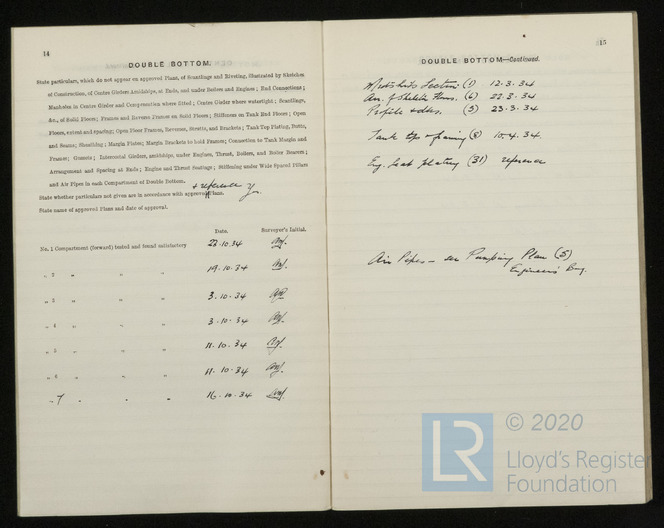 14
DOUBLE BOTTOM.
State particulars, which do not appear on approved Plans, of Scantlings and Riveting, illustrated by Sketches
of Construction, of Centre Girders Amidships, at Ends, and under Boilers and Engines; End Connections;
Manholes in Centre Girder and Compensation where fitted; Centre Girder where watertight; Scantlings,
&c., of Solid Floors; Frames and Reverse Frames on Solid Floors; Stiffeners on Tank End Floors; Open
Floors, extent and spacing; Open Floor Frames, Reverses, Struts, and Brackets; Tank Top Plating, Butts,
and Seams; Sheathing; Margin Plates; Margin Brackets to hold Frames; Connection to Tank Margin and
Frames; Gussets; Intercostal Girders, amidships, under Engines, Thrust, Boilers, and Boiler Bearers;
Arrangement and Spacing at Ends; Engine and Thrust Seatings; Stiffening under Wide Spaced Pillars
and Air Pipes in each Compartment of Double Bottom.
State whether particulars not given are in accordance with approved Plans. + reference Yes.
State name of approved Plans and date of approval.
Date. Surveyor's Initial.
No. 1 Compartment (forward) tested and found satisfactory 22.10.34
„ 2 „ „ „ 19.10.34
„ 3 „ „ „ 3.10.34
„ 4 „ „ „ 3.10.34
„ 5 „ „ „ 11.10.34
„ 6 „ „ „ 11.10.34
„ 7 „ „ „ 16.10.34
15
DOUBLE BOTTOM—Continued.
Midships Section (1) 12.3.34
(6) 22.3.34
Profile & dks. (5) 23.3.34
Tank top & framing (8) 10.4.34
Eng. seat plating (31) reference
Air Pipes – see Pumping Plan (5)
Engineers Bry.
© 2020
LR
Lloyd's Register
Foundation